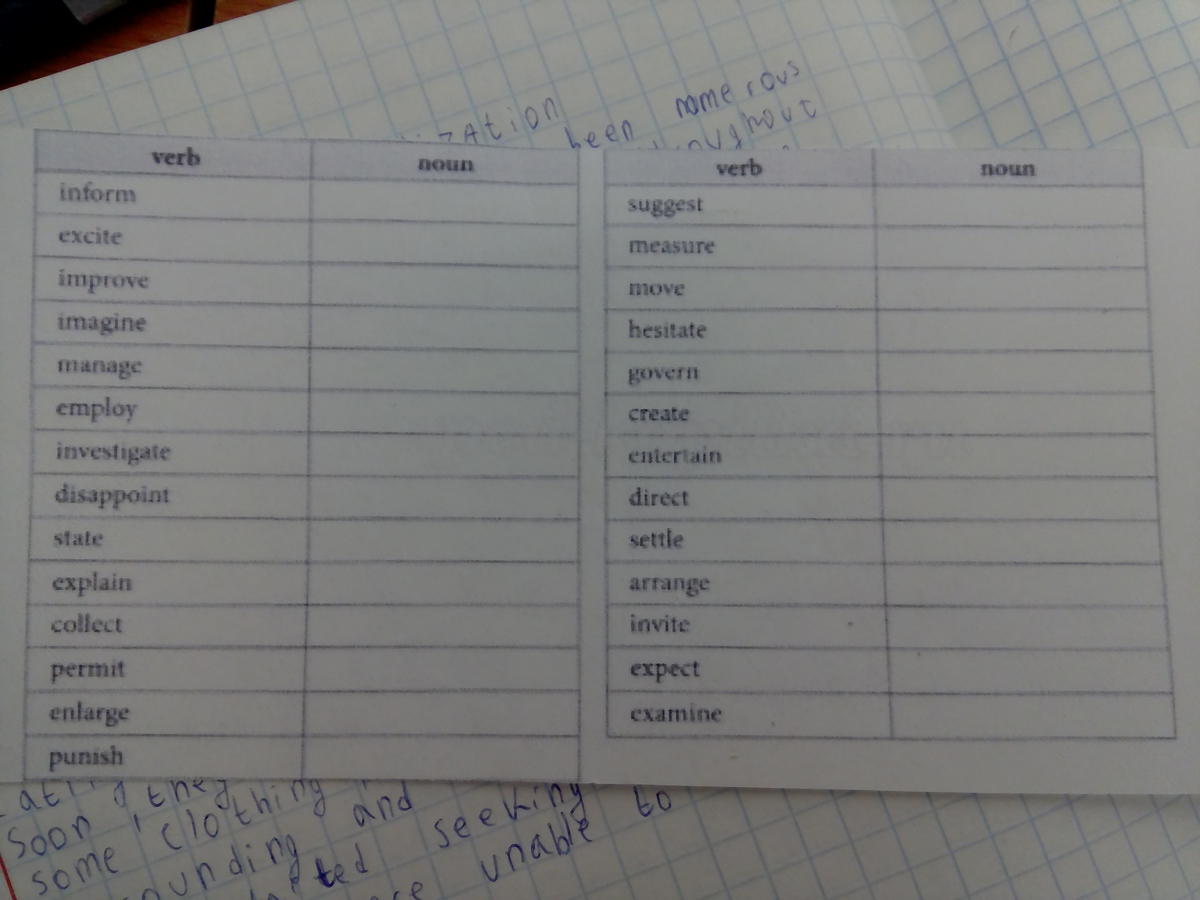 been nomerous
verb noun
inform
excite
improve
imagine
manage
employ
investigate
disappoint
state
explain
collect
permit
enlarge
punish
verb noun
suggest
measure
move
hesitate
govern
create
entertain
direct
settle
arrange
invite
expect
examine
they
soon clothing
some and seeking
unable to